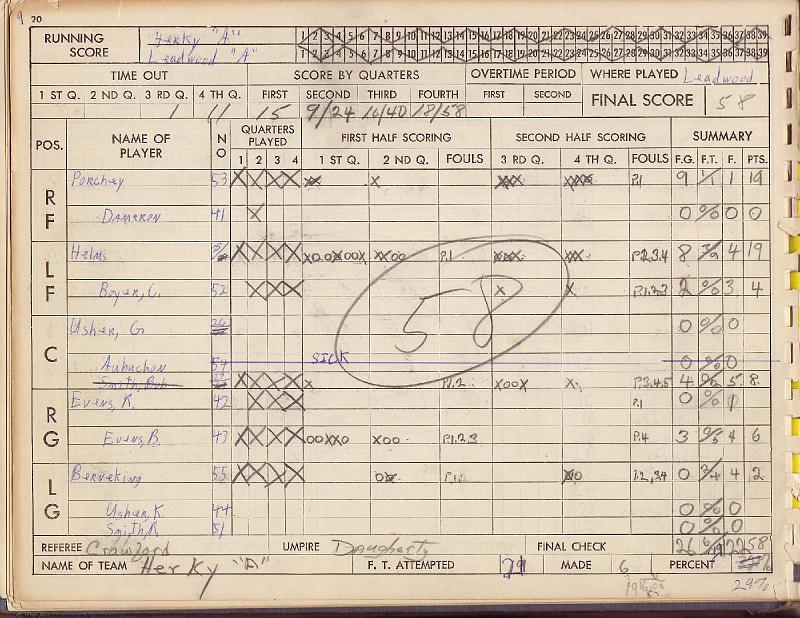 9 20
RUNNING SCORE Herky "A" 1 2 3 4 5 6 7 8 9 10 11 12 13 14 15 16 17 18 19 20 21 22 23 24 25 26 27 28 29 30 31 32 33 34 35 36 37 38 39
Leadwood "A" 1 2 3 4 5 6 7 8 9 10 11 12 13 14 15 16 17 18 19 20 21 22 23 24 25 26 27 28 29 30 31 32 33 34 35 36 37 38 39
TIME OUT SCORE BY QUARTERS OVERTIME PERIOD WHERE PLAYED Leadwood
1 ST Q. 2 ND Q. 3 RD Q. 4 TH Q. FIRST SECOND THIRD FOURTH FIRST SECOND FINAL SCORE 58
1 11 15 9/24 16/40 18/58
POS. NAME OF PLAYER NO QUARTERS PLAYED FIRST HALF SCORING SECOND HALF SCORING SUMMARY
1 2 3 4 1 ST Q. 2 ND Q. FOULS 3 RD Q. 4 TH Q. FOULS F.G. F.T. F. PTS.
RF Porchey 53 X X X X XX X XXX XXXX P.1 9 1/1 1 19
Dameron 41 X 0 0/0 0 0
LF Helms X X X X XOOXOOX XXOO P.1 XXX XXX P.2.3.4 8 4 19
Boyer, C. 52 X X X X X P.1.2.3 2 3 4
58
C Usher, G 0 0/0 0
Aubuchon 54 SICK 0 0/0 0
Smith, Bob X X X X X P.1.2 XOOX X P.3.4.5 4 5 8
RG Evens, R. 42 X X X P.1 0 0/0 1
Evens, B. 43 X X X X OOXXO XOO P.1.2.3 P.4 3 0/5 4 6
LG Berneking 55 X X X X P.2,3,4 0 4 2
Usher, K. 44 0 0/0 0
Smith, R. 51 0 0/0 0
REFEREE Crawford UMPIRE Daugherty FINAL CHECK 26 6/19 22 58
NAME OF TEAM Herky "A" F. T. ATTEMPTED MADE 6 PERCENT
29%